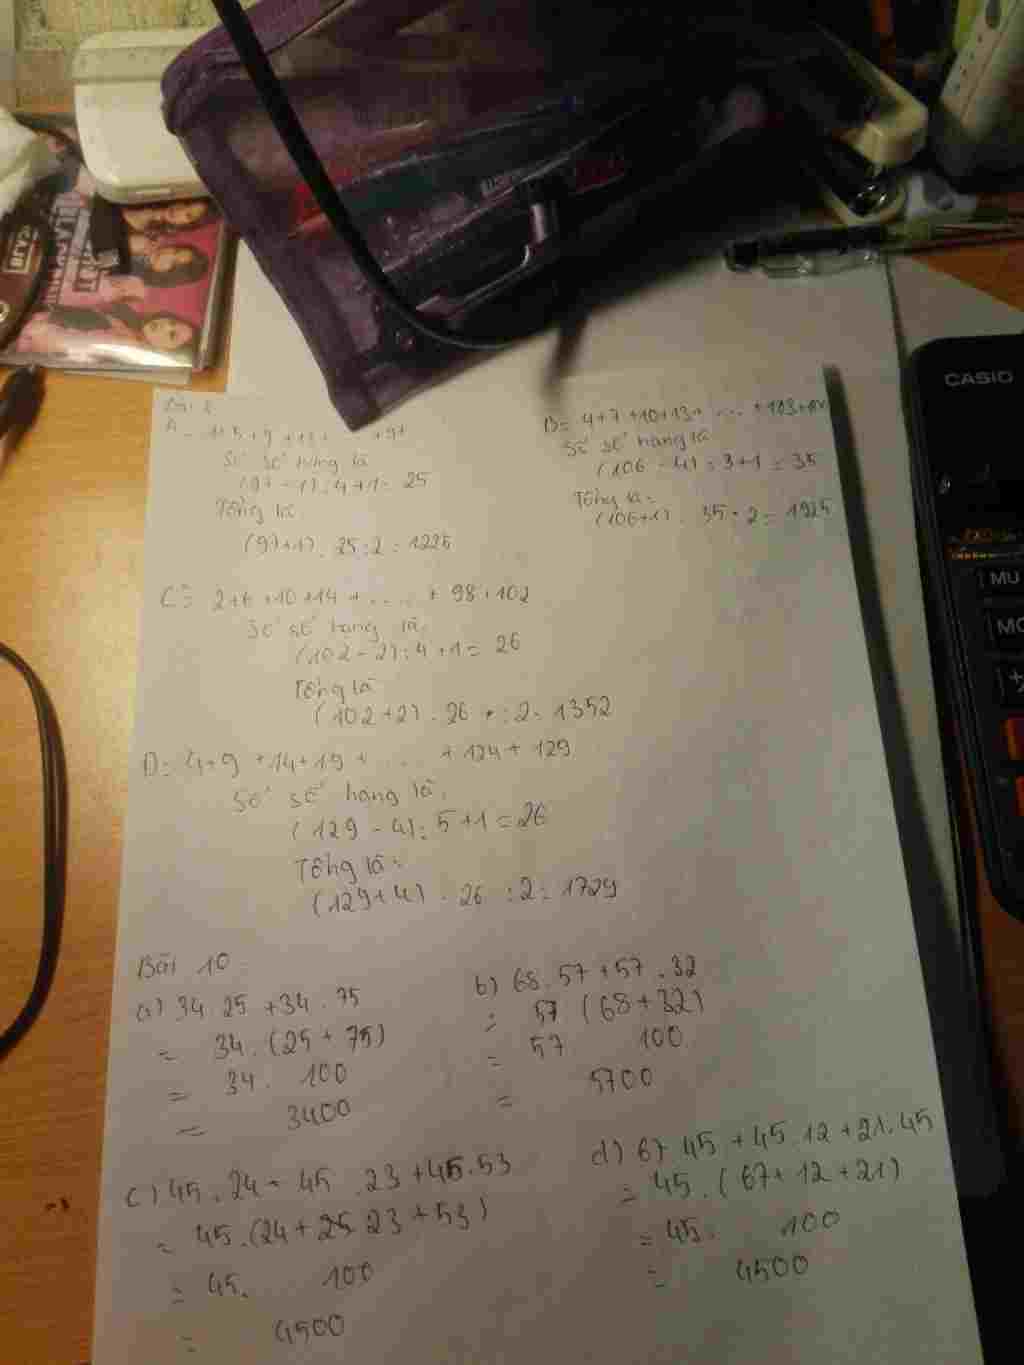 CASIO
MU
A = 1+5+9+13+ ... +97
Số số hạng là
(97 - 1) : 4 + 1 = 25
Tổng là
(97+1) . 25 : 2 = 1225
B = 4+7+10+13+ ... +103+106
Số số hạng là
(106 - 4) : 3 + 1 = 35
Tổng là:
. 35 : 2 = 1925
C = 2+6+10+14 + .... + 98+102
Số số hạng là:
(102 - 2) : 4 + 1 = 26
Tổng là
(102+2) . 26 : 2 = 1352
D = 4+9+14+19+ ... +124+129
Số số hạng là:
(129 - 4) : 5 + 1 = 26
Tổng là:
(129+4) . 26 : 2 = 1729
Bài 10
a) 34.25 +34.75
= 34.(25+75)
= 34. 100
= 3400
b) 68.57+57.32
= 57 (68+32)
= 57 100
= 5700
c) 45.24+45.23+45.53
= 45.(24+23+53)
= 45. 100
= 4500
d) 67 45+45.12+21.45
= 45.(67+12+21)
= 45. 100
= 4500